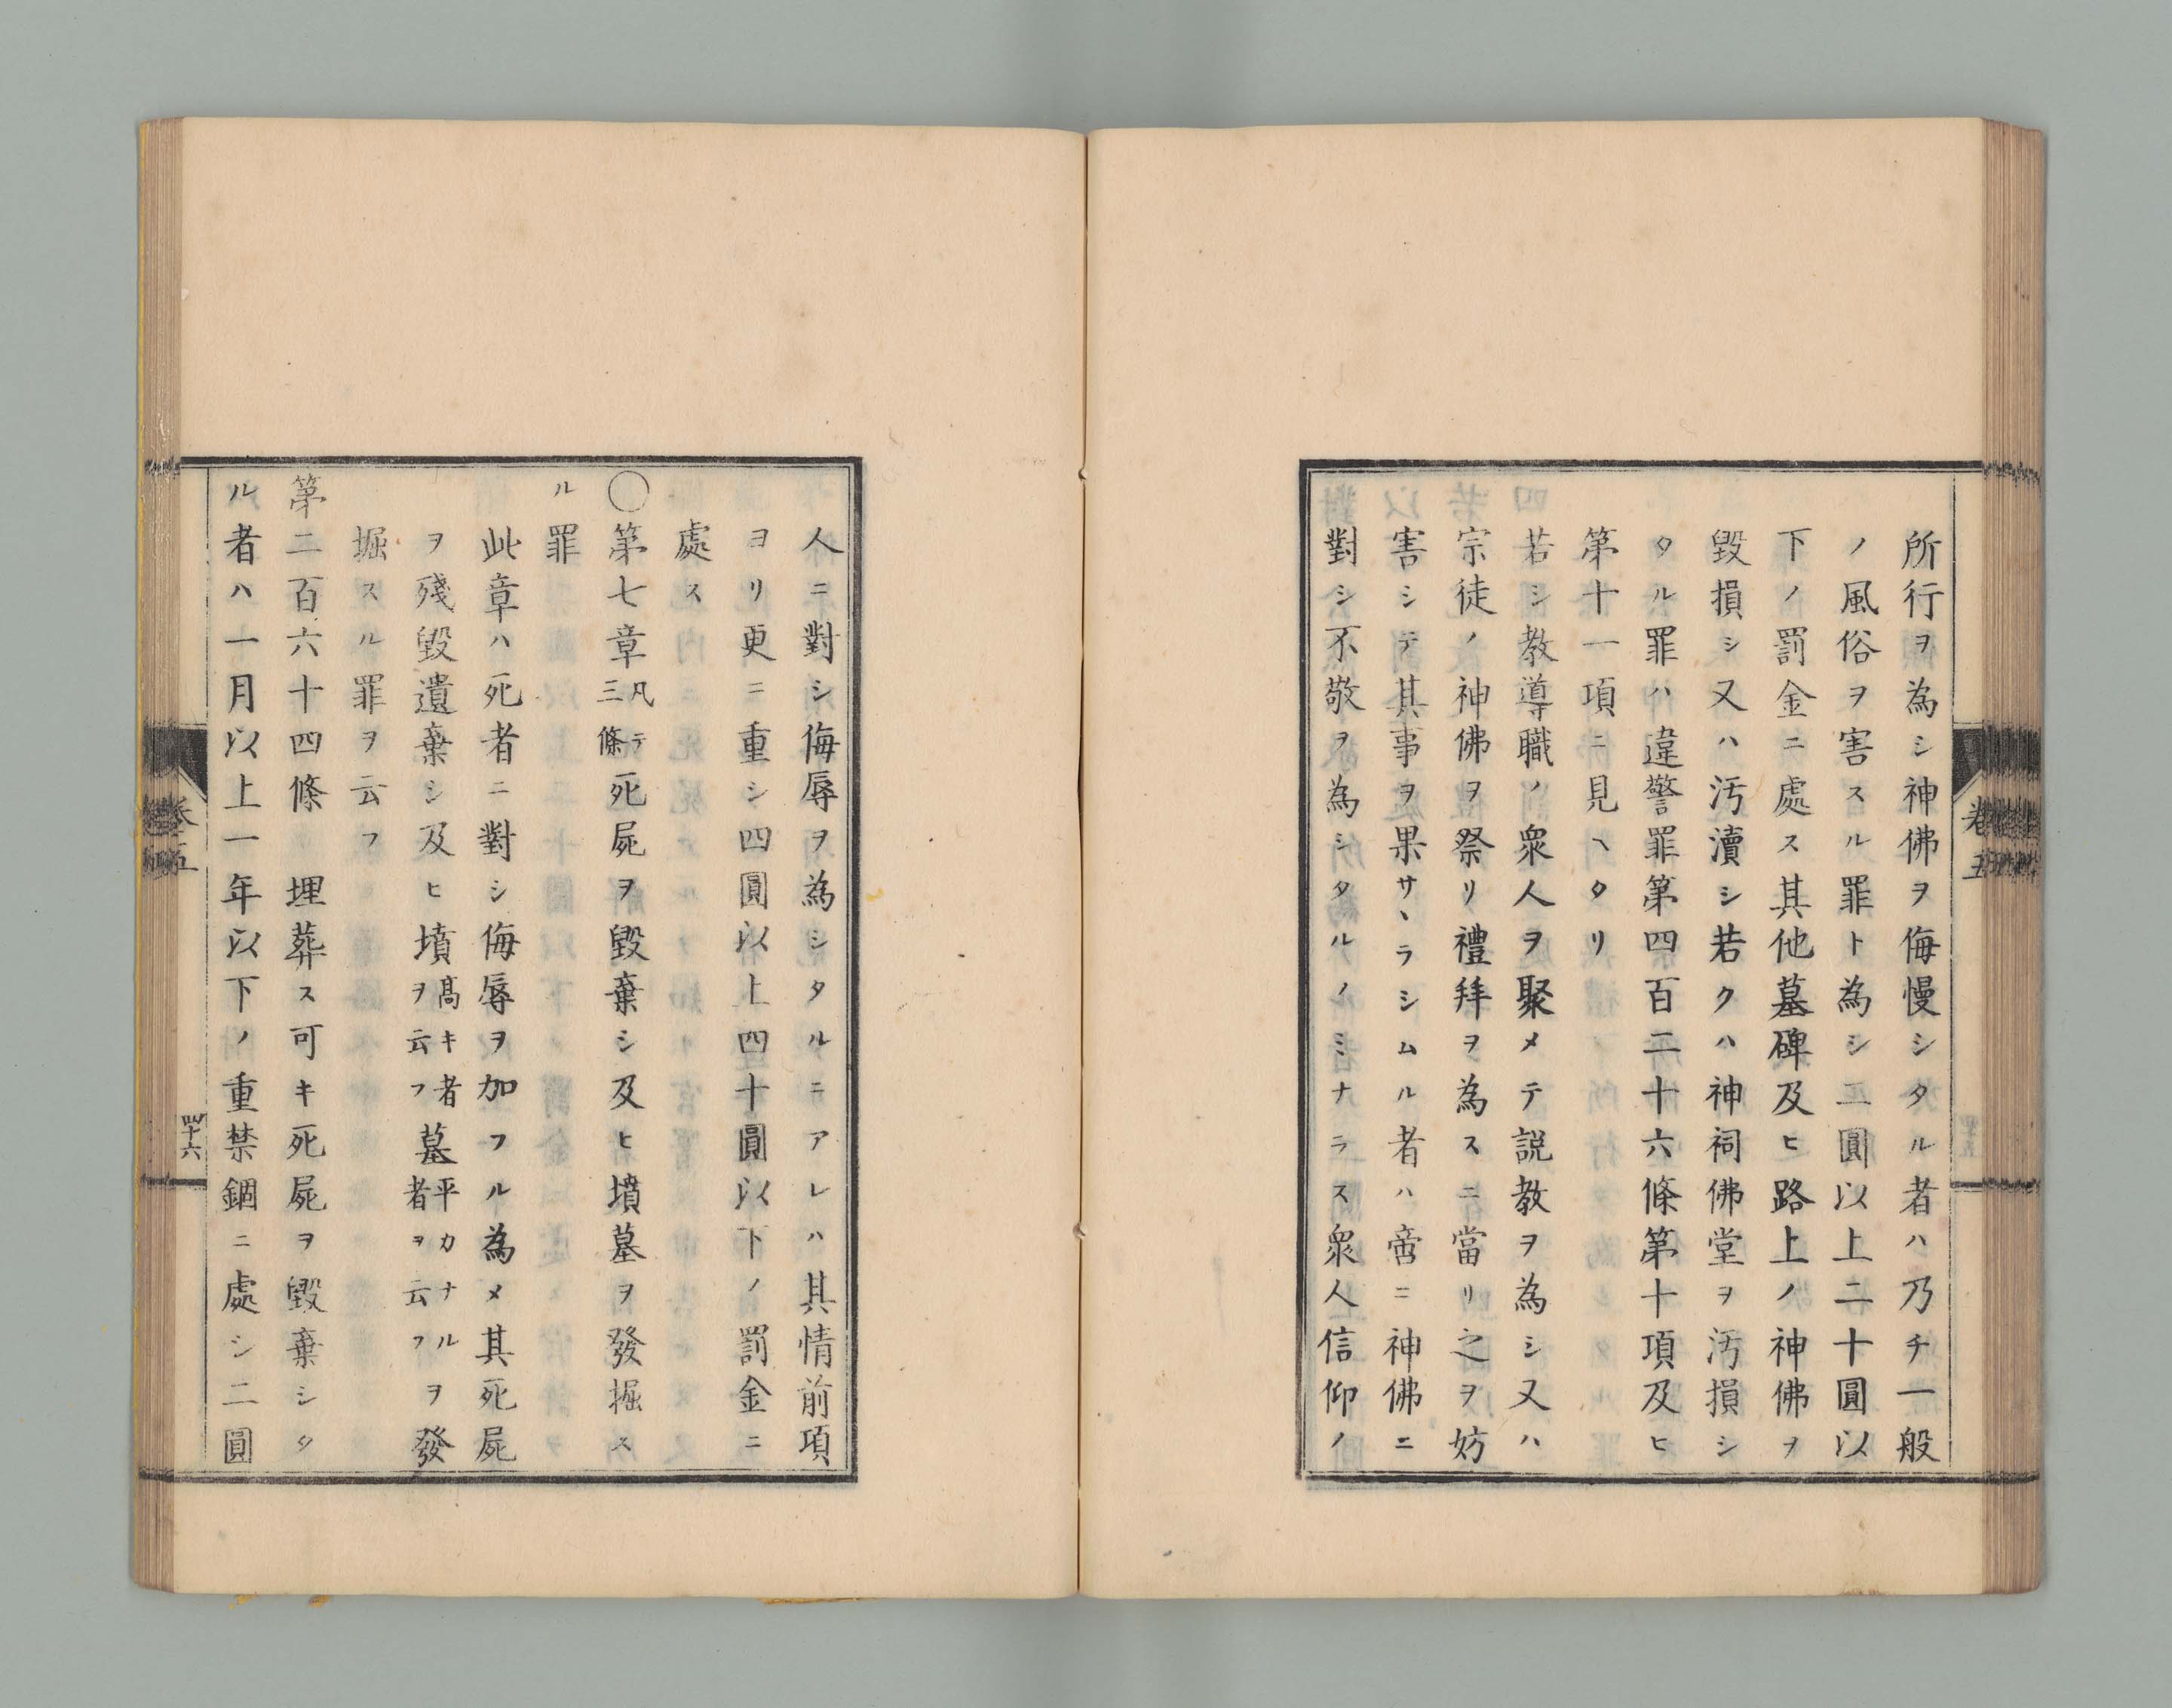 所行ヲ為シ神佛ヲ侮慢シタル者ハ乃チ一般
ノ風俗ヲ害スル罪ト為シ二圓以上二十圓以
下ノ罰金ニ處ス其他墓碑及ヒ路上ノ神佛ヲ
毀損シ又ハ汚瀆シ若クハ神祠佛堂ヲ汚損シ
タル罪ハ違警罪第四百二十六條第十項及ヒ
第十一項ニ見ヘタリ
若シ教導職ノ衆人ヲ聚メテ説教ヲ為シ又ハ
宗徒ノ神佛ヲ祭リ禮拜ヲ為スニ當リ之ヲ妨
害シテ其事ヲ果サヽラシムル者ハ啻ニ神佛ニ
對シ不敬ヲ為シタルノミナラス衆人信仰ノ
卷五
人ニ對シ侮辱ヲ為シタルニアレハ其情前項
ヨリ更ニ重シ四圓以上四十圓以下ノ罰金ニ
處ス
○第七章凡テ三條死屍ヲ毀棄シ及ヒ墳墓ヲ發掘ス
ル罪
此章ハ死者ニ對シ侮辱ヲ加フル為メ其死屍
ヲ殘毀遺棄シ及ヒ墳高キ者ヲ云フ墓平カナル者ヲ云フヲ發
掘スル罪ヲ云フ
第二百六十四條 埋葬ス可キ死屍ヲ毀棄シタ
ル者ハ一月以上一年以下ノ重禁錮ニ處シ二圓
卷五
四十六